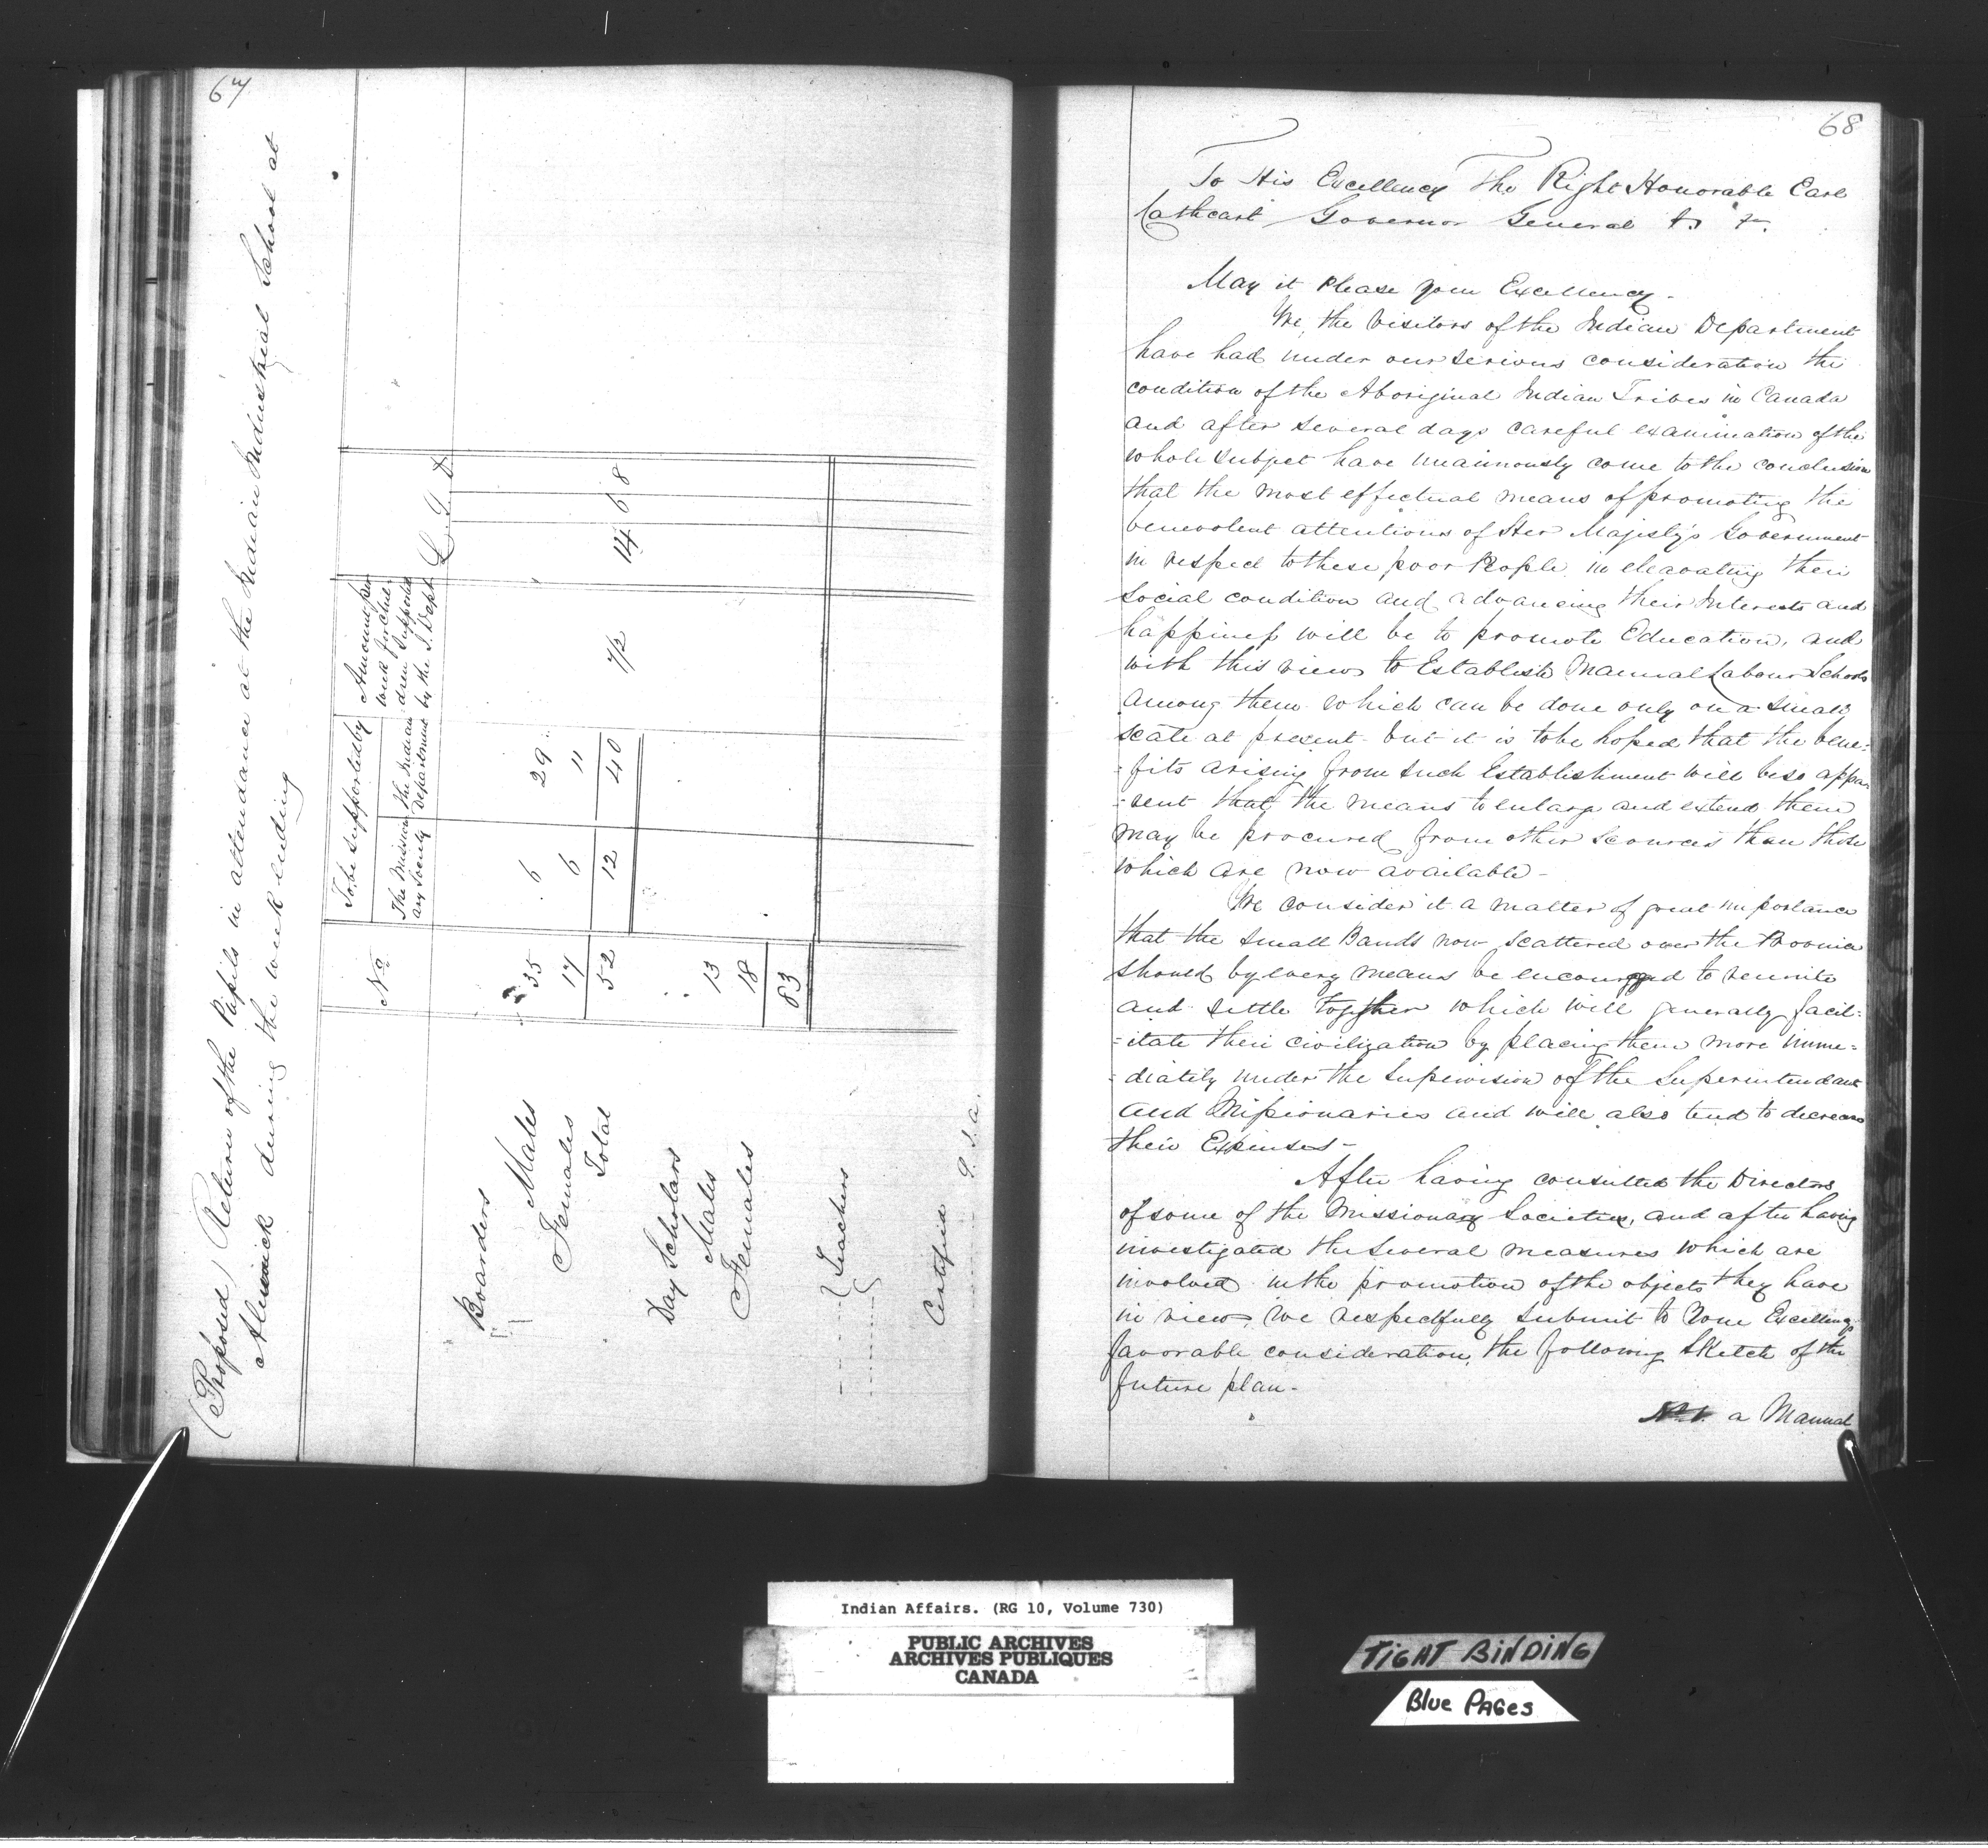 67
(Proposed) Return of the Pupils in attendance at the Indian Industrial School at
Alnwick during the week ending
No.
To be supported by
The Mission-
ary Society
The Indian
Department
Amount per
week for Chil-
dren supported
by the I. Dept.
£. S. D
Boarders
Males 35 6 29
Females 17 6 11
Total 52 12 40 7/2 14 6 8
Day Scholars
Males 13
Females 18
83
Teachers
Certified
68
To His Excellency The Right Honorable Earl
Cathcart Governor General
May it Please your Excellency -
We, the Visitors of the Indian Department
have had under our serious consideration the
condition of the Aboriginal Indian Tribes in Canada
and after several days careful examination of the
whole subject have unaimously come to the conclusion
that the most effectual means of promoting the
benevolent attentions of Her Majesty's Government
in respect to these poor People in elevating their
social condition and advancing their Interests and
happiness will be to promote Education, and
with this view to Establish Manual Labour Schools
among them which can be done only on a small
scale at present but it is to be hoped that the bene-
-fits arising from such Establishment will be so appa-
-rent that the means to enlarge and extend them
may be procured from other scources than those
which are now available -
We consider it a matter of great importance
that the small Bands now scattered over the Province
should by every means be encouraged to reunite
and settle together which will generally facil-
-itate their civilization by placing them more imme-
-diately under the supervision of the Superintendant
and Missionaries and will also tend to decrease
their Expenses -
After having consulted the Directors
of some of the Missionary Societies, and after having
investigated the several measures which are
involved in the promotion of the objects they have
in view, we respectfully submit to Your Excellency's
favorable consideration, the following sketch of the
future plan -
No. 1. a Manual
Indian Affairs. (RG 10, Volume 730)
PUBLIC ARCHIVES
ARCHIVES PUBLIQUES
CANADA
TIGHT BINDING
Blue PAGes